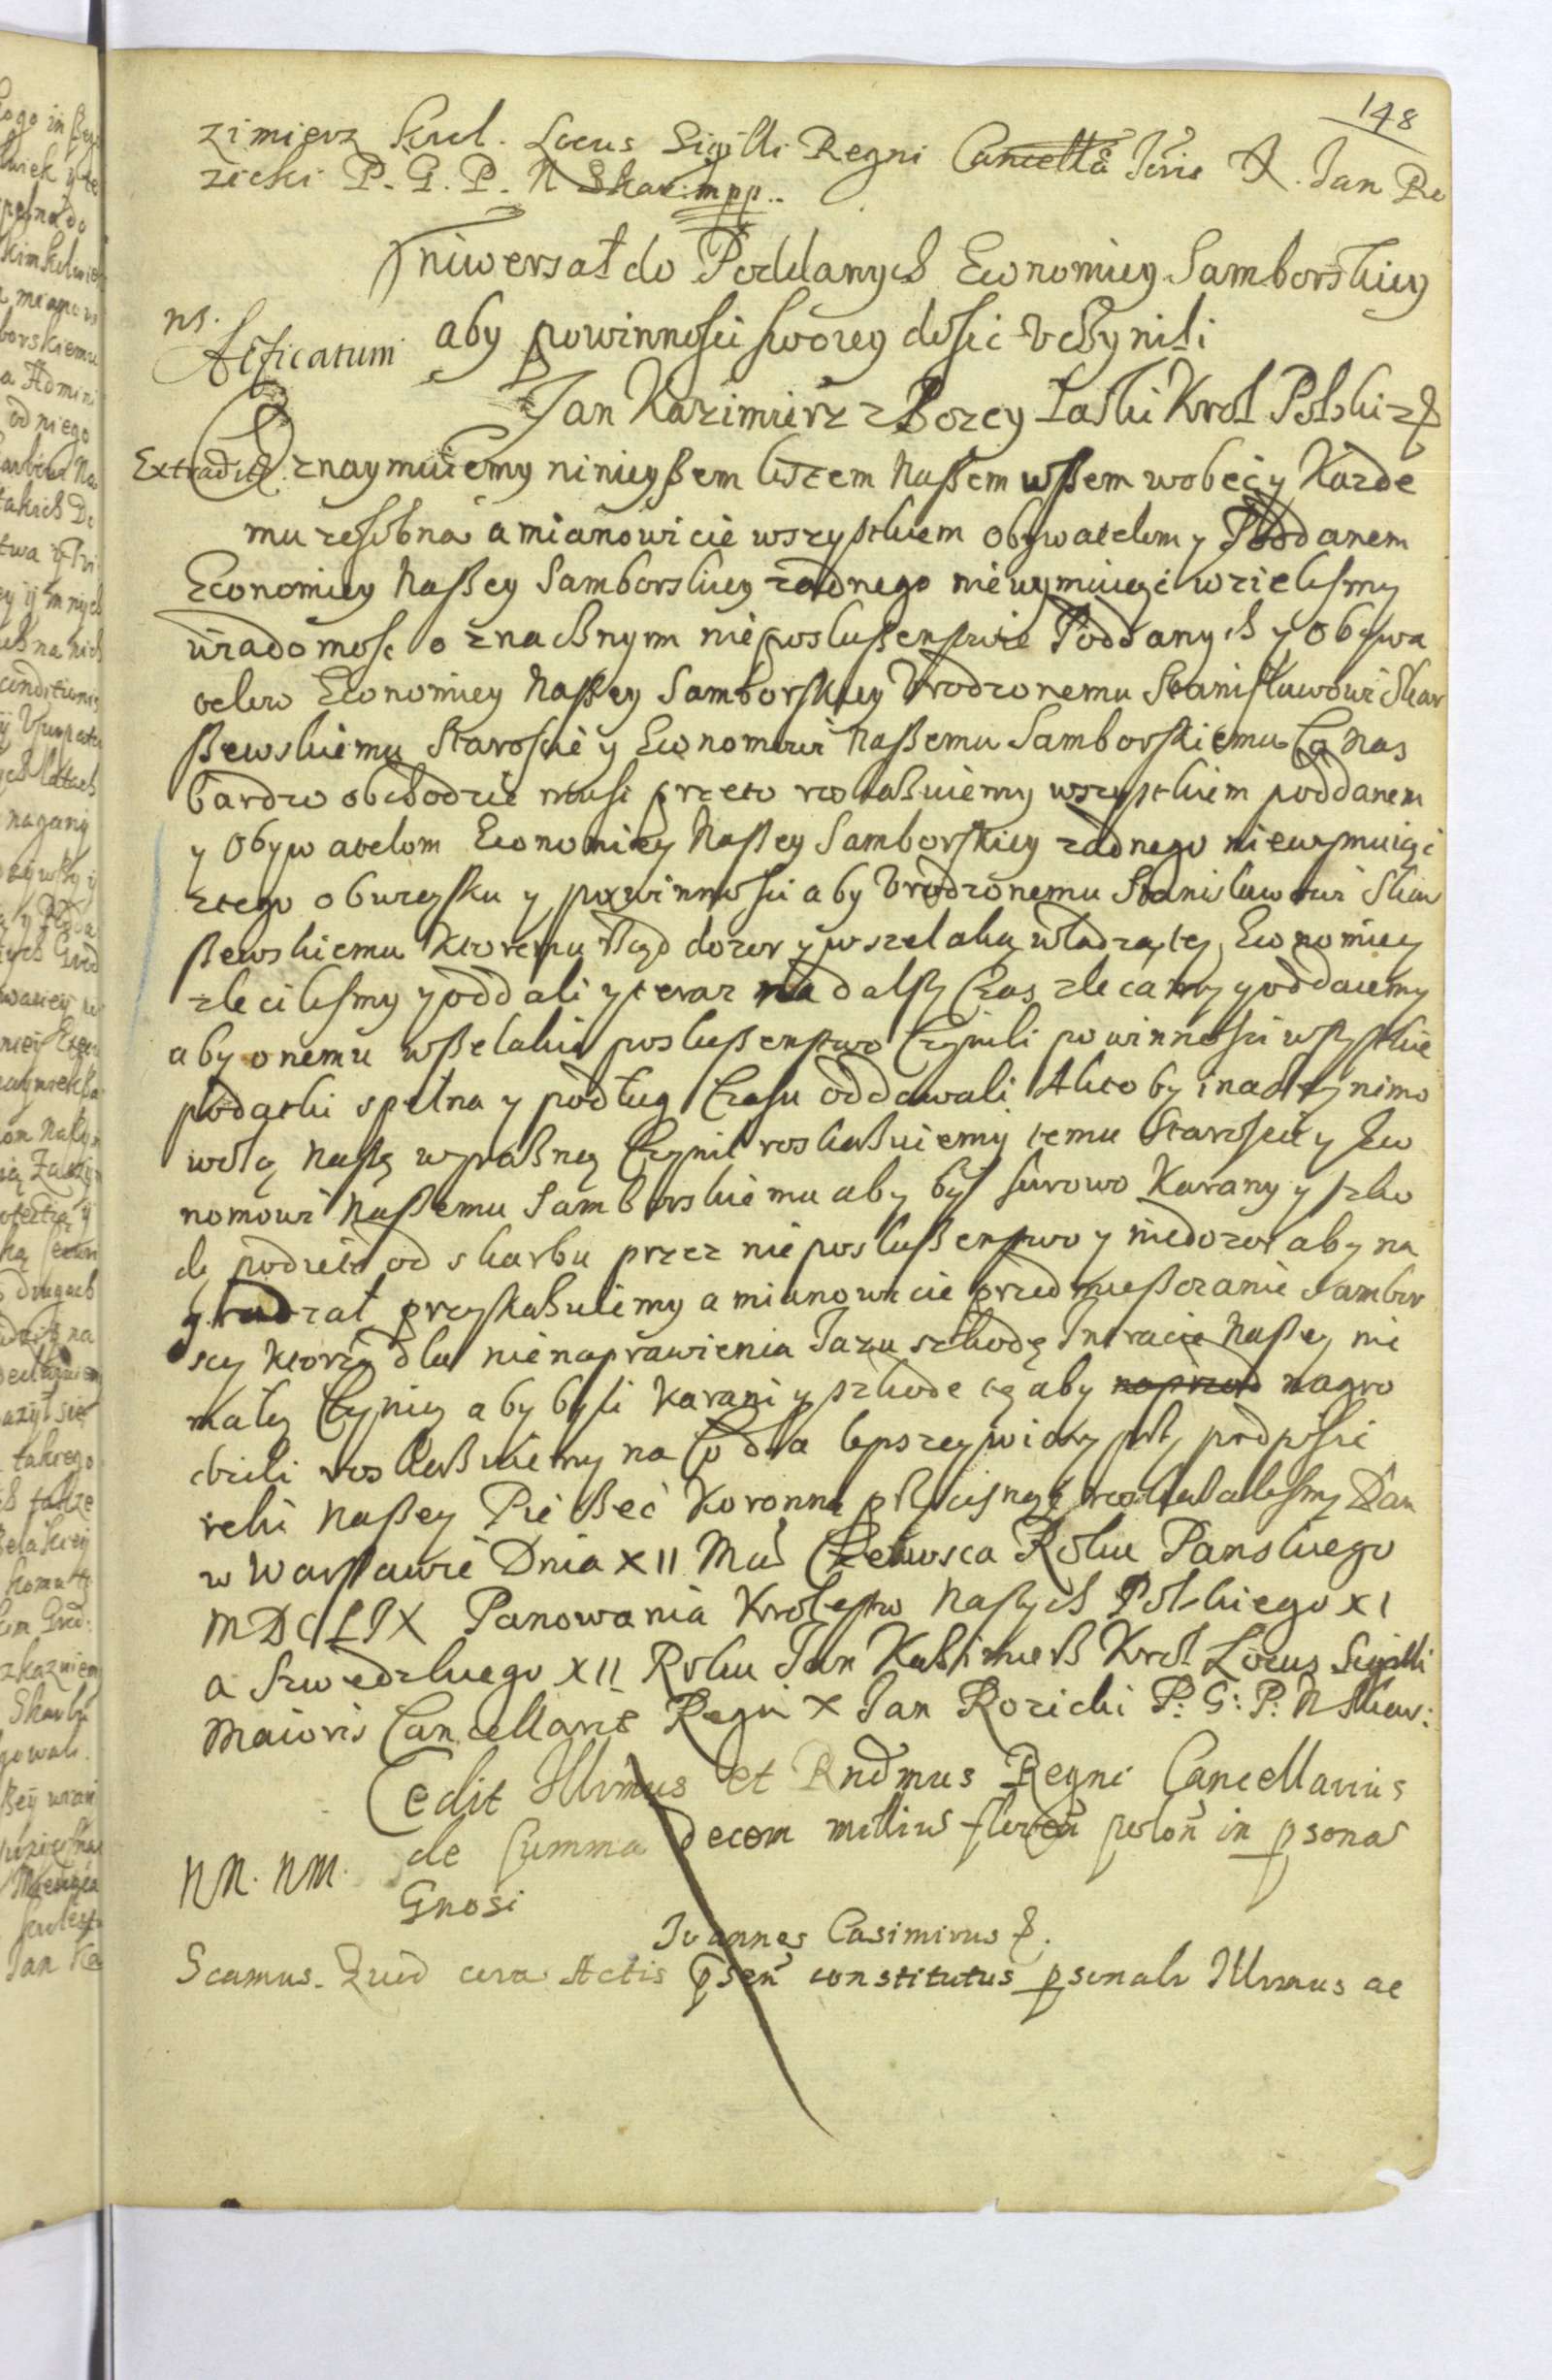 148
zimierz Krol. Locus Sigilli Regni Cancella Jan Ro
zicki P. G. P. N Skar. mpp.
Vniwersał do Poddanych Economiey Samborskiey
aby powinnosci swoiey dosic vczynili
ns.
Actificatum
Jan Kazimierz z Bozey Łaski Krol Polski z
Extradit.
Oznaymuiemy ninieyßem listem Naßem wßem wobec y Kazde
mu zosobna a mianowicie wszystkiem Obywatelom y Poddanem
Economiey Naßey Samborskiey zadnego niewymuiąc wzielismy
wiadomosc o znacznym nieposlußenstwie Poddanych y Obywa
telow Economiey Naßey Samborskiey Vrodzonemu Stanisławowi Skar
ßewskiemu Staroscie y Economowi Naßemu Samborskiemu Co Nas
bardzo obchodzic musi przeto roskaßuiemy wszystkiem poddanem
y Obywatelom Economiey Naßey Samborskiey zadnego niewymuiąc
ztego obwezsku y powinnosci aby Vrodzonemu Stanisławowi Skar
ßewskiemu Ktoremu Rząd dozor y wszelaką władzą tey Economiey
zlecilismy y oddali y teraz na dalszy Czas zlecamy y oddaiemy
aby onemu wßelakie poslußenstwo Czynili powinnosci wßystkie
podatki spełna y podług Czasu oddawali A kto by inaczey nimo
wolą Naßę wyraßną Czynił roskaßuiemy temu Staroscie y Eco
nomowi Naßemu Samborskiemu aby był surowo Karany y szko
dy podiete od skarbu przez nieposlußenstwo y niedozor aby na
gradzał przykaßuiemy a mianowicie przedmießczanie Sambor
scy Ktorzy dla nienaprawienia Jazu szkodę Intracie Naßey nie
małą Czynią aby byli karani y szkode tę aby naprzod nagro
dzili roskaßuiemy na Co dla lepszey wiary przy podpisie
reki Naßey Pießeć Koronną przycisnąć roskazalismy Dan
w Warßawie Dnia XII Msca Czerwca Roku Panskiego
MDCLIX Panowania Krolestw Naßych Polskiego XI
a Szwedzkiego XII Roku Jan Kaßimierß Krol Locus Sigilli
Maioris Cancellariæ Regni X Jan Rozicki P: G: P: N Skar:
Cedit Illrmus et Rndmus Regni Cancellarius
de summa decem millium floren polon in psonas
NM. NM.
Gnosi
Joannes Casimirus
Scamus. Quod cora Actis psen constitutus psonalr Illrmus ac